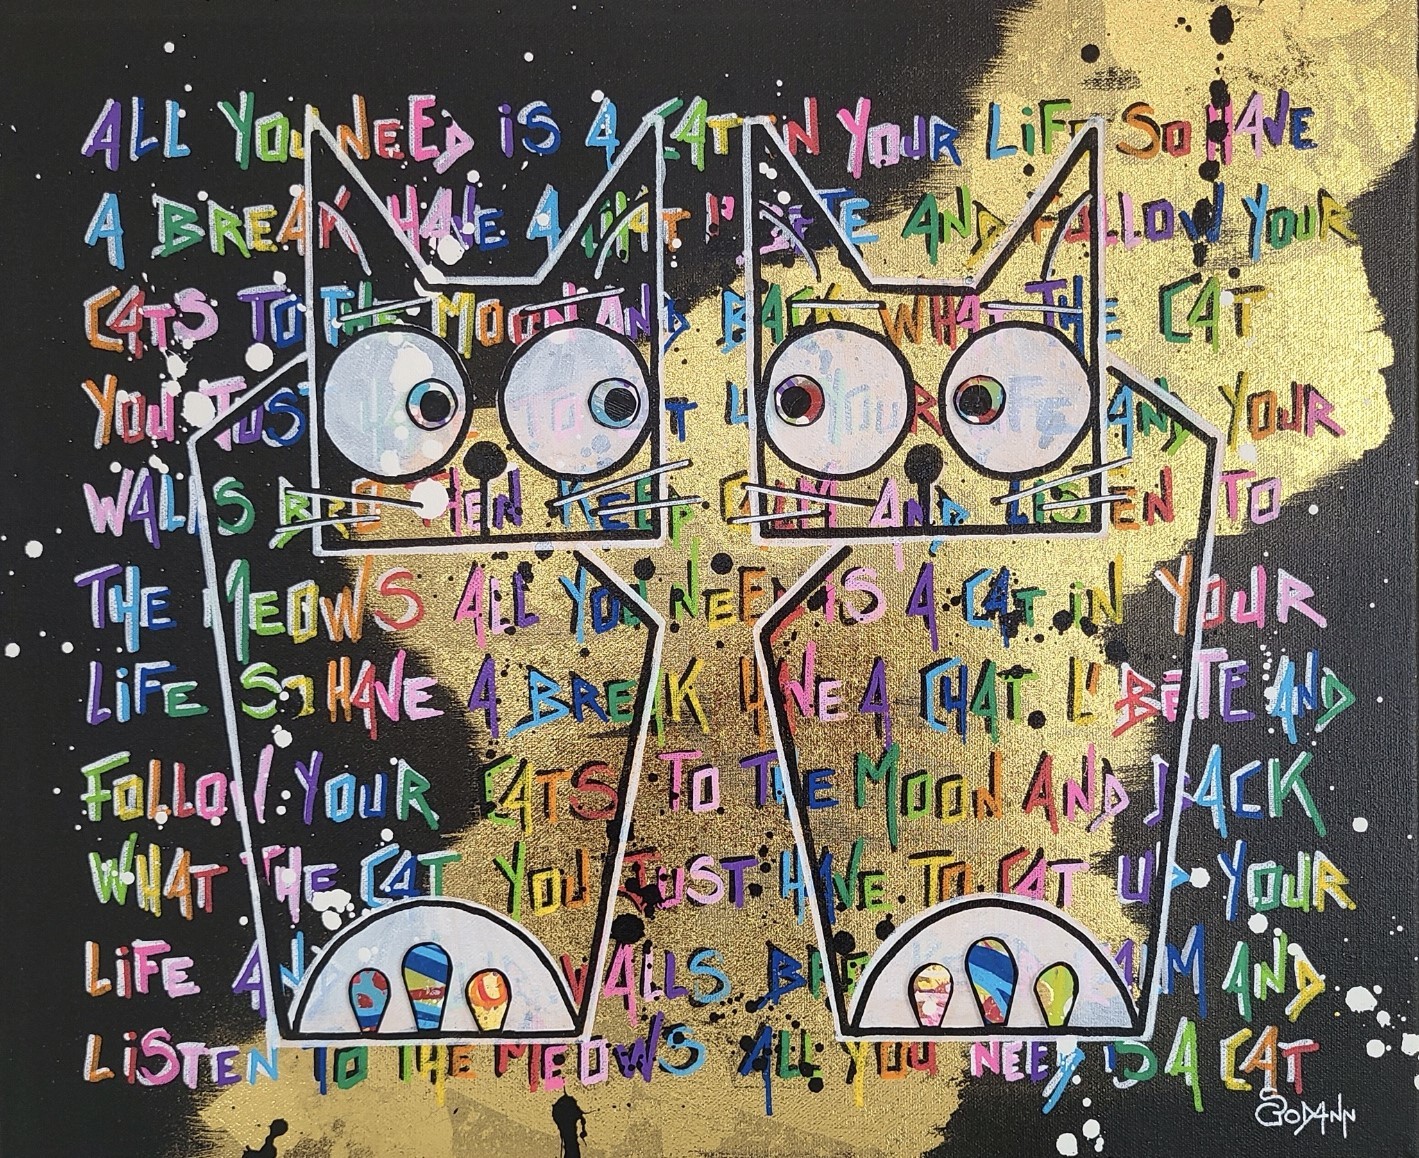 ALL YOU NEED iS A CAT iN YOUR LiFE SO HAVE
A BREAK HAVE A CHAT L' BETE AND FOLLOW YOUR
CATS TO THE MOON AND BACK WHAT THE CAT
YOU JUST TO LiFE AND YOUR
WALLS BRO THEN KEEP CALM AND LISTEN TO
THE MEOWS ALL YOU NEED iS A CAT iN YOUR
LiFE SO HAVE A BREAK HAVE A CHAT. L' BETE AND
FOLLOW YOUR CATS TO THE MOON AND BACK
WHAT THE CAT YOU JUST HAVE TO CAT UP YOUR
LiFE AND WALLS BRO CALM AND
LiSTEN TO THE MEOWS ALL YOU NEED iS A CAT
GODANN